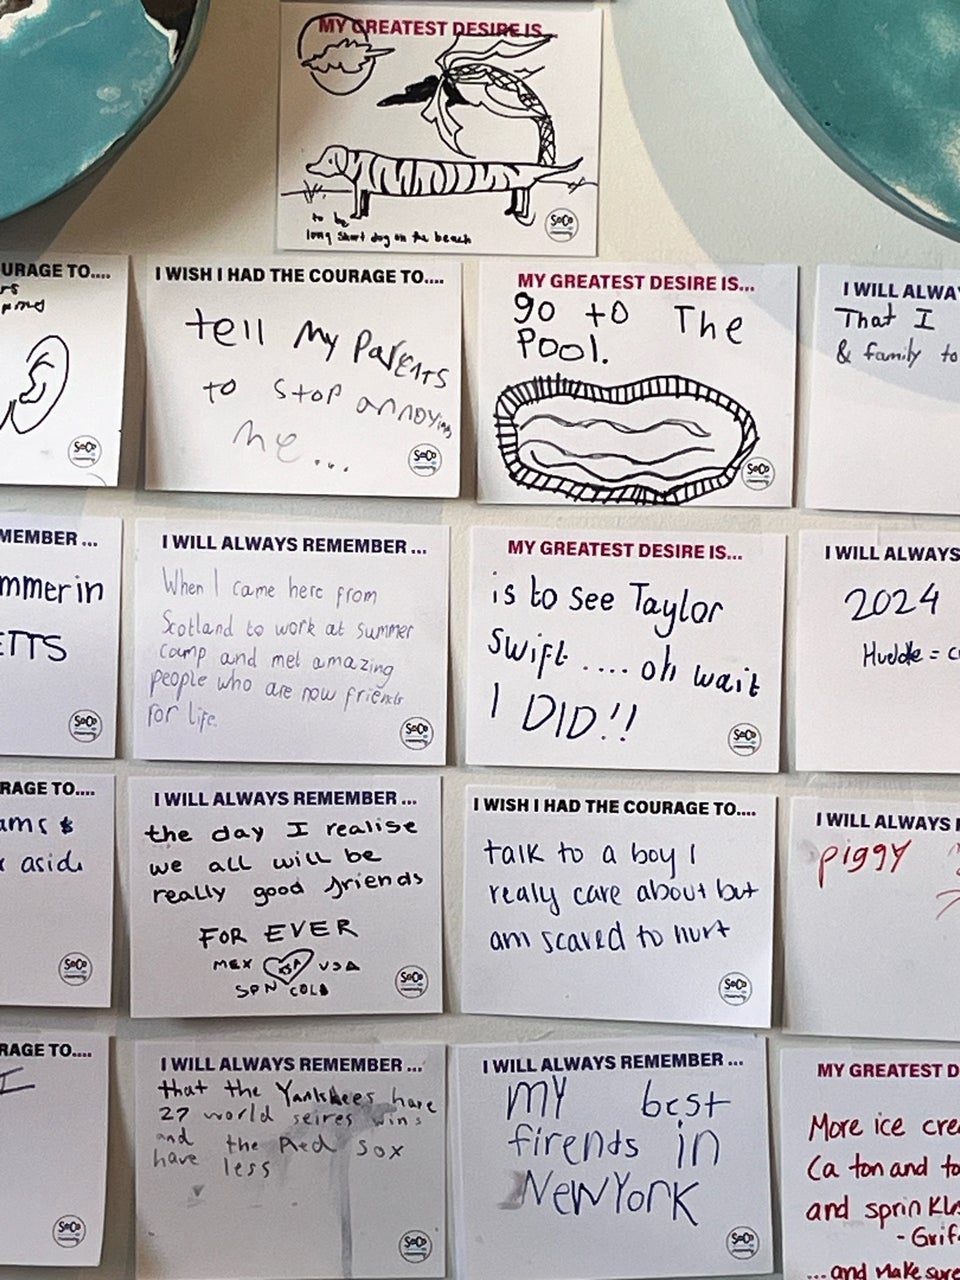 MY GREATEST DESIRE IS...
to be
long short dog on the beach
SoCo
URAGE TO....
SoCo
I WISH I HAD THE COURAGE TO....
tell My PareNTS
to stop annoying
me...
SoCo
MY GREATEST DESIRE IS...
go to The
Pool.
SoCo
I WILL ALWA
That I
& family to
MEMBER ...
mmer in
ETTS
SoCo
I WILL ALWAYS REMEMBER ...
When I came here from
Scotland to work at summer
camp and met amazing
people who are now friends
for life.
SoCo
MY GREATEST DESIRE IS...
is to see Taylor
Swift .... oh wait
I DID!!
SoCo
I WILL ALWAYS
2024
RAGE TO....
ams &
asid
SoCo
I WILL ALWAYS REMEMBER ...
the day I realise
we all will be
really good friends
FOR EVER
MEX USA
SPN COLO
SoCo
I WISH I HAD THE COURAGE TO....
talk to a boy I
realy care about but
am scared to hurt
SoCo
I WILL ALWAYS
piggy
RAGE TO....
I
SoCo
I WILL ALWAYS REMEMBER ...
that the Yankhees have
27 world seires wins
and the Red Sox
have less
SoCo
I WILL ALWAYS REMEMBER ...
MY best
firends in
New York
SoCo
MY GREATEST D
More ice cre
Ca ton and to
and sprinkl
- Grif
...and make sure